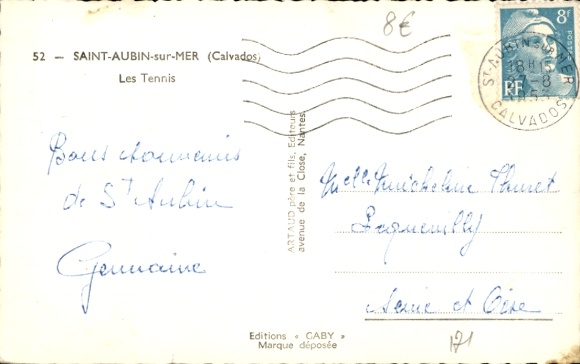 8€
52 — SAINT-AUBIN-sur-MER (Calvados)
Les Tennis
8F
POSTES
RF
ST-AUBIN SUR MER
18H15
2-8
CALVADOS
Bons souvenirs
de St Aubin
Germaine
ARTAUD père et fils, Editeurs
avenue de la Close, Nantes
Melle Micheline
Seine et Oise
Editions « GABY »
Marque déposée
171